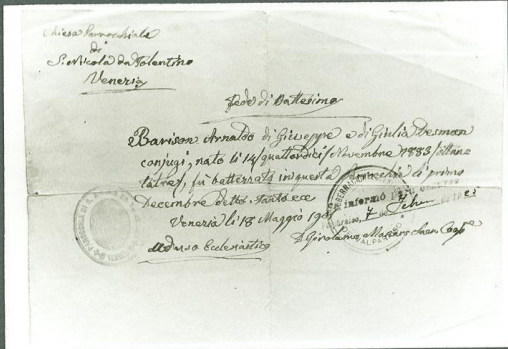 Chiesa Parrocchiale
di
S. Nicola da Tolentino
Venezia
Fede di Battesimo
Barison Arnaldo di Giuseppe e di Giulia Desman
conjugi, nato li 14/quattordici/Novembre 1883/ottan
tatre/, fù battezzato in questa Parrocchia il primo
Decembre detto.
Venezia li 18 Maggio
Ad uso Ecclesiastico
informó
7
VALPARAISO
D. Girolamo